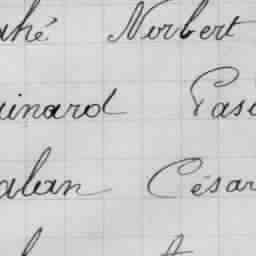 ahé Norbert
uinard Pas
alan César